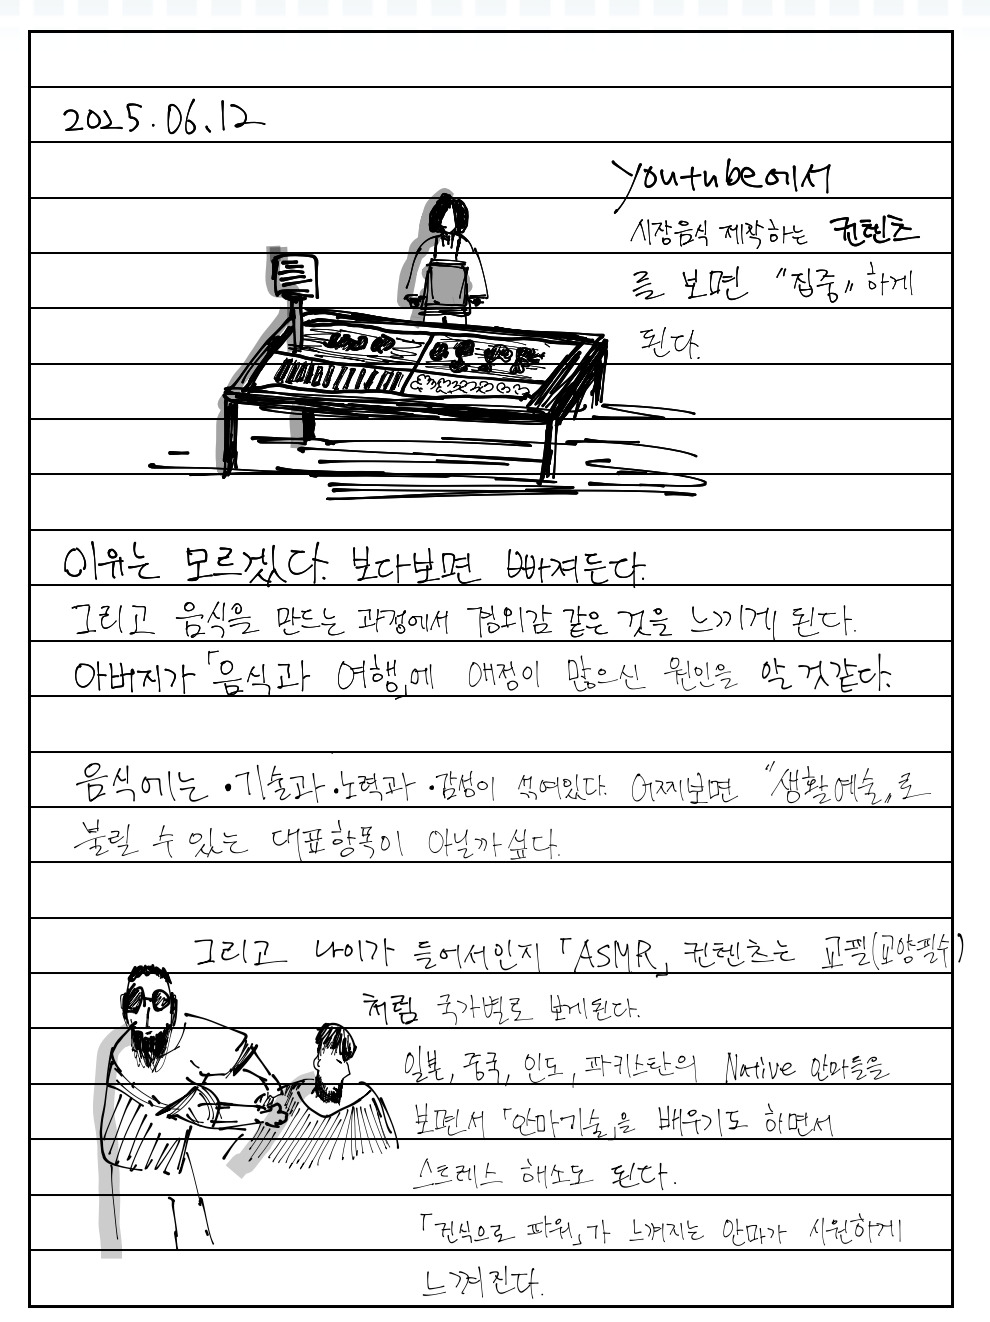 2025.06.12
Youtube에서
시장음식 제작하는 컨텐츠
를 보면 "집중" 하게
된다.
이유는 모르겠다. 보다보면 빠져든다.
그리고 음식을 만드는 과정에서 경외감 같은 것을 느끼게 된다.
아버지가 「음식과 여행」에 애정이 많으신 원인을 알 것같다.
음식에는 ·기술과 ·노력과 ·감성이 섞여있다. 어찌보면 "생활예술"로
불릴 수 있는 대표항목이 아닐까싶다.
그리고 나이가 들어서인지 「ASMR」 컨텐츠는 교필(교양필수)
처럼 국가별로 보게된다.
일본, 중국, 인도, 파키스탄의 Native 안마들을
보면서 「안마기술」을 배우기도 하면서
스트레스 해소도 된다.
「건식으로 파워」가 느껴지는 안마가 시원하게
느껴진다.